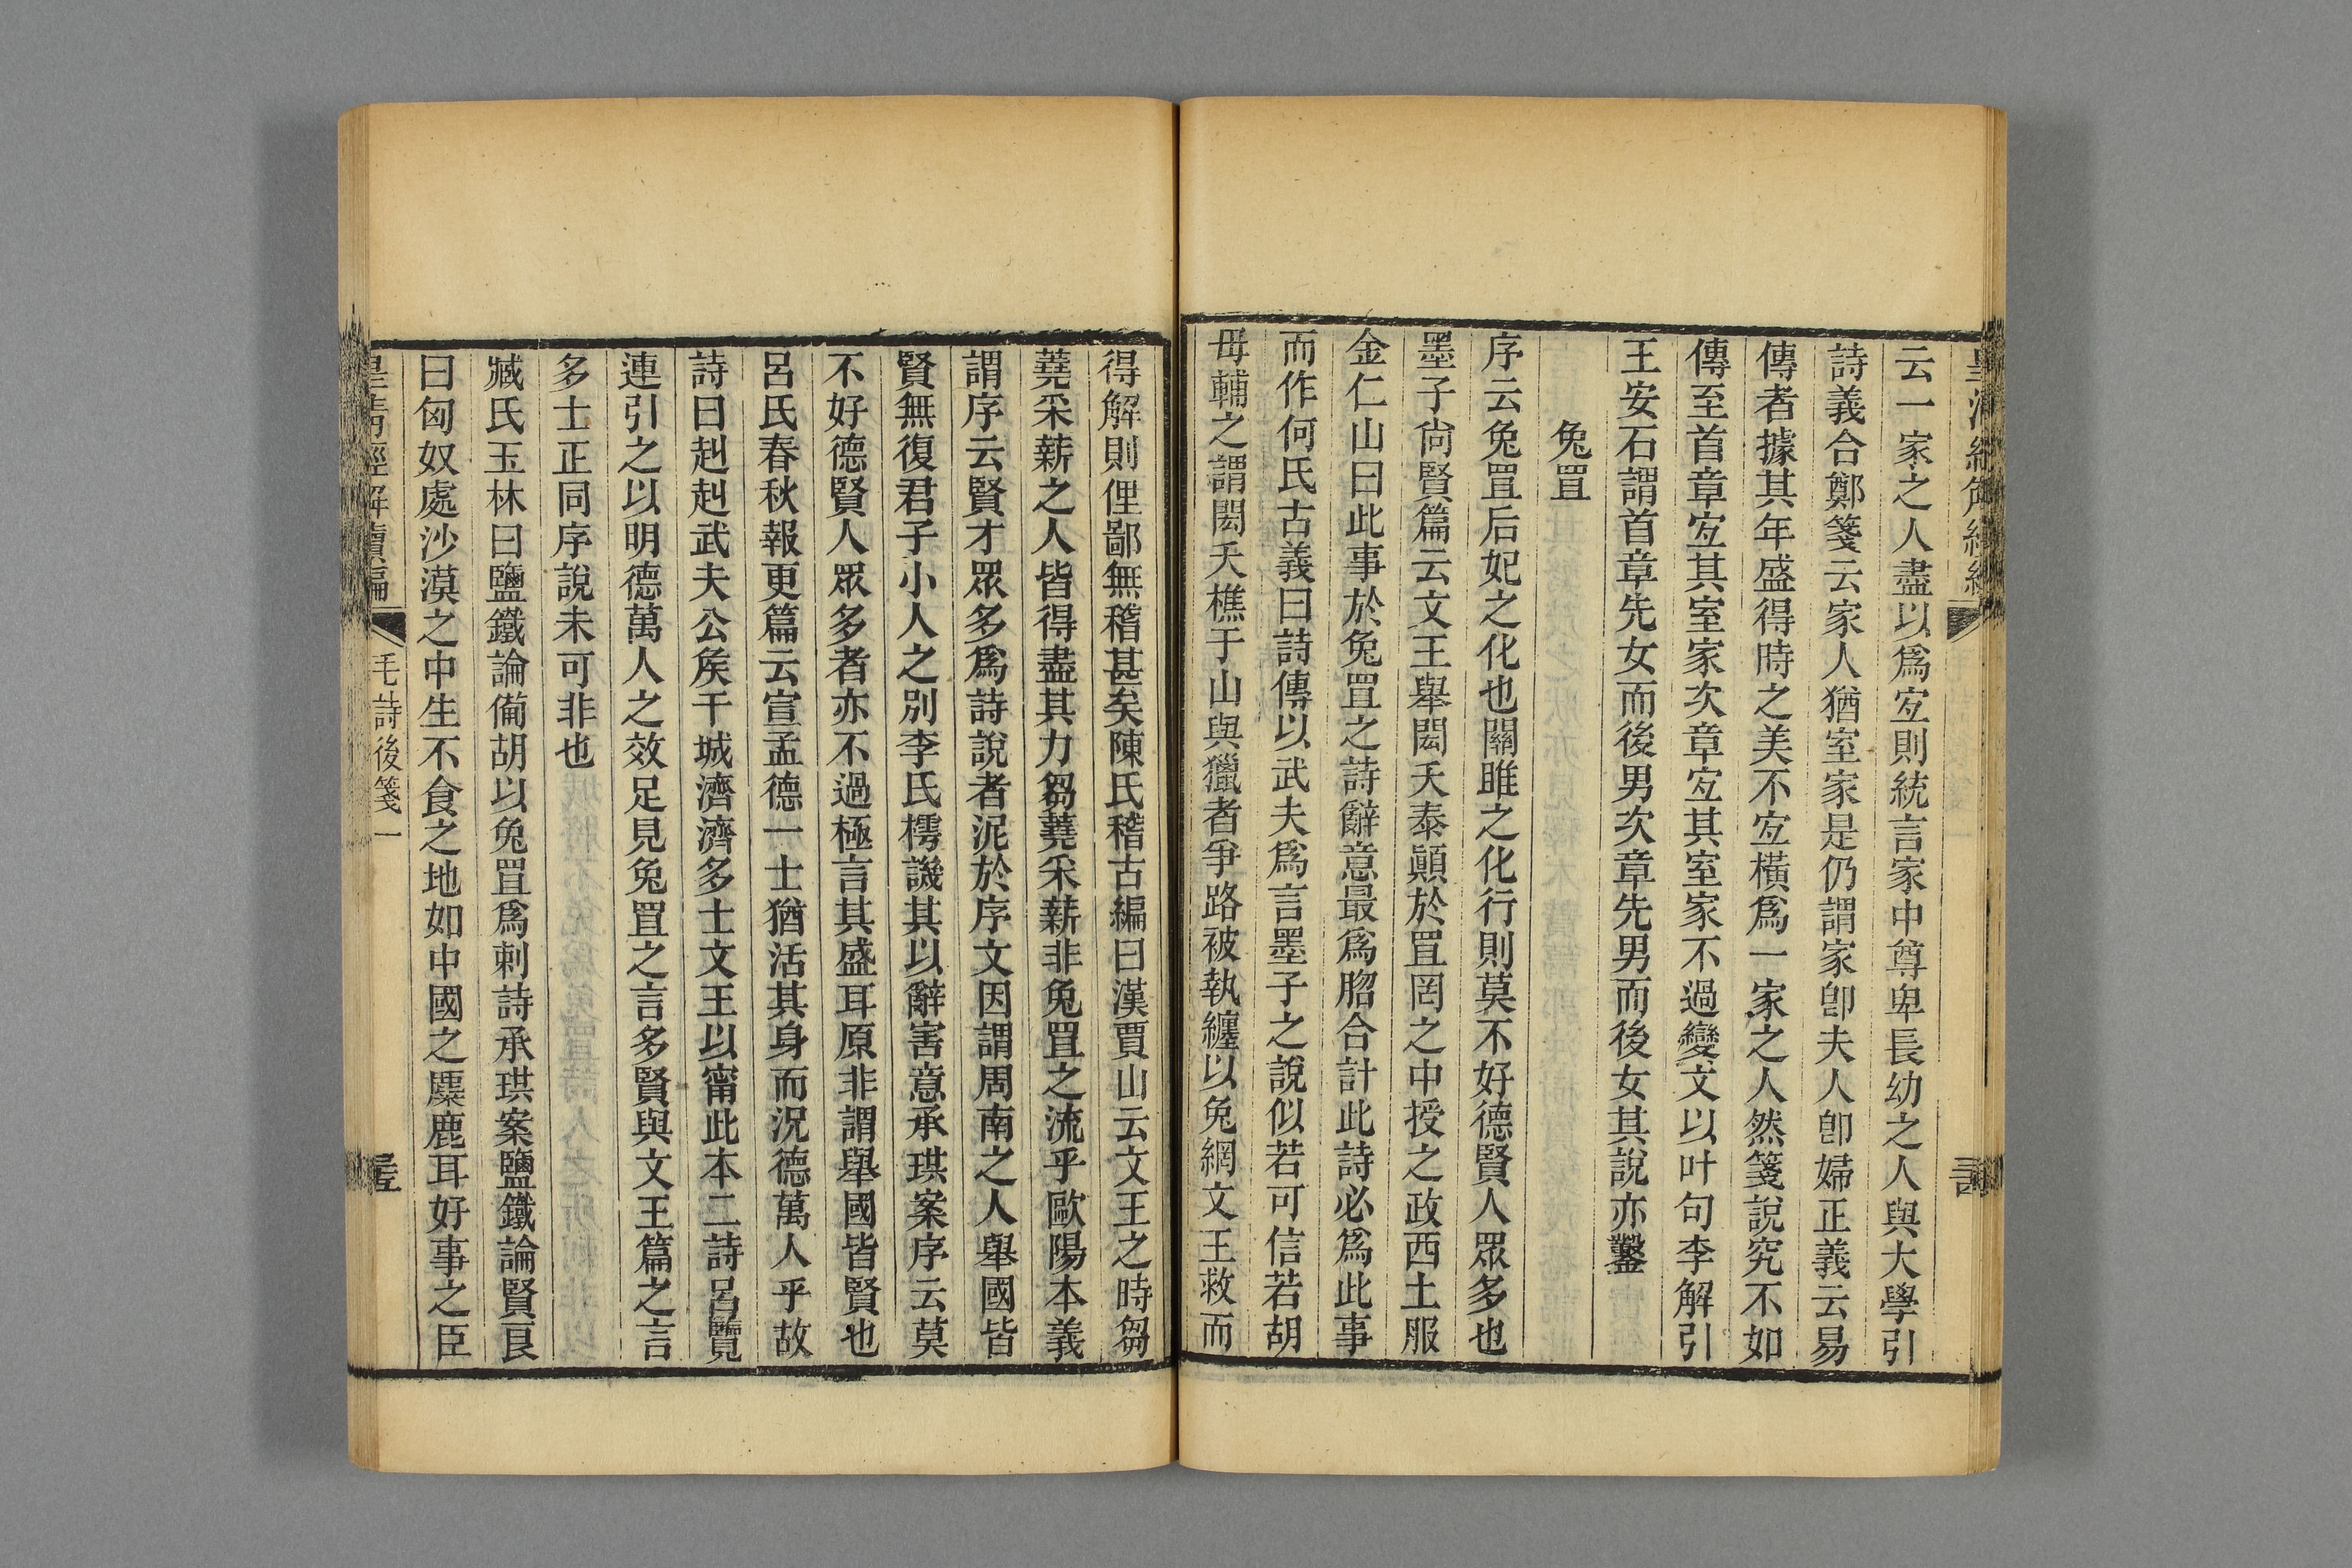 云一家之人盡以爲宐則統言家中尊卑長幼之人與大學引
詩義合鄭箋云家人猶室家是仍謂家卽夫人卽婦正義云易
傳者據其年盛得時之美不宐橫爲一家之人然箋說究不如
傳至首章宐其室家次章宐其室家不過變文以叶句李解引
王安石謂首章先女而後男次章先男而後女其說亦鑿
兔罝
序云兔罝后妃之化也關雎之化行則莫不好德賢人眾多也
墨子尙賢篇云文王舉閎夭泰顚於罝罔之中授之政西土服
金仁山曰此事於兔罝之詩辭意最爲脗合計此詩必爲此事
而作何氏古義曰詩傳以武夫爲言墨子之說似若可信若胡
毋輔之謂閎夭樵于山與獵者爭路被執纏以兔網文王救而
得解則俚鄙無稽甚矣陳氏稽古編曰漢賈山云文王之時芻
蕘采薪之人皆得盡其力芻蕘采薪非兔罝之流乎歐陽本義
謂序云賢才眾多爲詩說者泥於序文因謂周南之人舉國皆
賢無復君子小人之別李氏樗譏其以辭害意承珙案序云莫
不好德賢人眾多者亦不過極言其盛耳原非謂舉國皆賢也
呂氏春秋報更篇云宣孟德一士猶活其身而況德萬人乎故
詩曰赳赳武夫公矦干城濟濟多士文王以甯此本二詩呂覽
連引之以明德萬人之效足見兔罝之言多賢與文王篇之言
多士正同序說未可非也
臧氏玉林曰鹽鐵論備胡以兔罝爲刺詩承珙案鹽鐵論賢良
曰匈奴處沙漠之中生不食之地如中國之麋鹿耳好事之臣
皇淸經解續編
毛詩後箋一